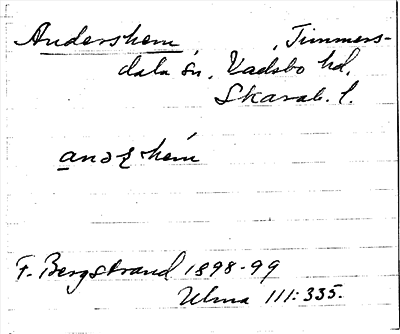 Andershem, , Timmers-
dala sn. Vadsbo hd.
Skarab. l.
F. Bergstrand 1898-99
Ulma 111:335.